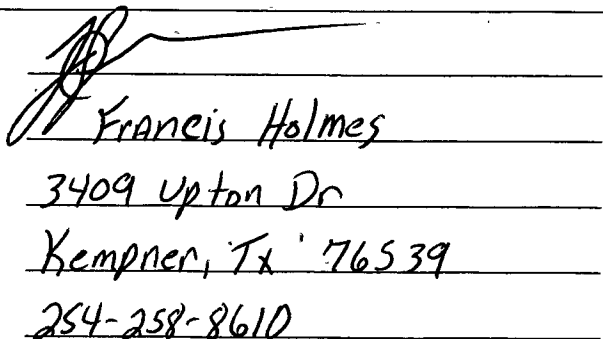 Francis Holmes
3409 Upton Dr
Kempner, Tx 76539
254-258-8610